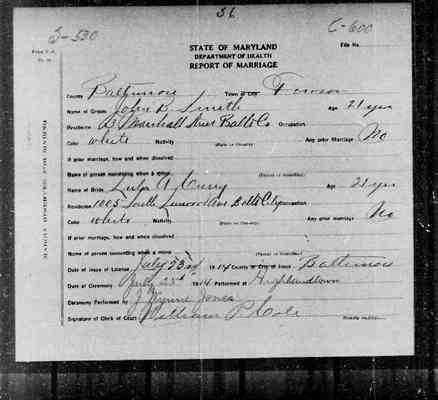 36
S-530
C-600
STATE OF MARYLAND
DEPARTMENT OF HEALTH
REPORT OF MARRIAGE
File No.
County Baltimore Town or City Towson
Name of Groom John B. Smith Age 21 yrs
Residence Marshall Balto Co Occupation
Color white Nativity (State or Country) Any prior Marriage No
If prior marriage, how and when dissolved
Name of person consenting when a minor (Parent or Guardian)
Name of Bride A. Age 21 yrs
Residence 1005 South Ave Balto City Occupation
Color white Nativity (State or Country) Any prior marriage No
If prior marriage, how and when dissolved
Name of person consenting when a minor (Parent or Guardian)
Date of Issue of License July 23rd 1914 County or City of Issue Baltimore
Date of Ceremony July 23rd 1914 Performed at Highlandtown
Ceremony Performed by Jones
Signature of Clerk of Court William P. Cole
MARGIN RESERVED FOR BINDING